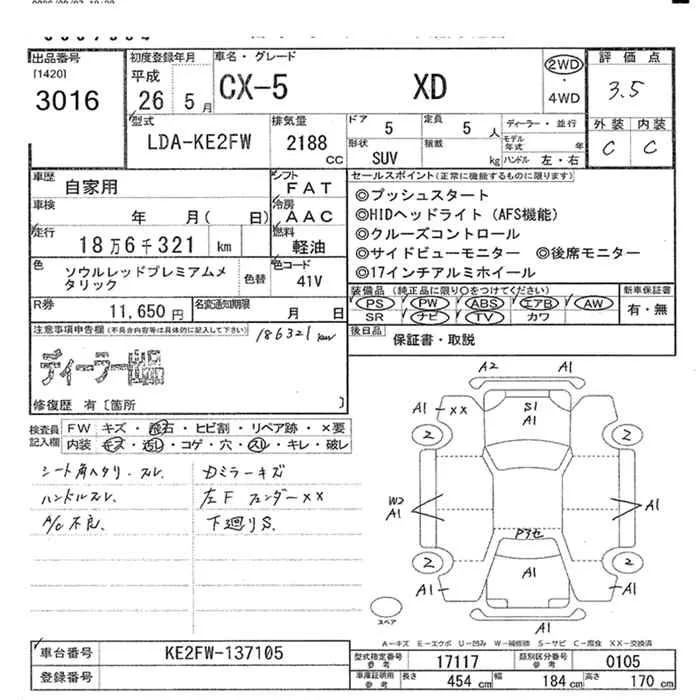 出品番号
[1420]
3016
初度登録年月
平成
26 5月
車名・グレード
CX-5 XD
2WD
・
4WD
評価点
3.5
型式
LDA-KE2FW
排気量
2188
CC
ドア
5
定員
5 人
形状
SUV
積載
kg
ディーラー・並行
モデル
年式 年
ハンドル 左・右
外装 内装
C C
車歴
自家用
シフト
FAT
車検
年 月( 日)
冷房
AAC
走行
18万6千321 km
燃料
軽油
色
ソウルレッドプレミアムメ
タリック
色替
色コード
41V
R券
11,650円
名変通知期限
月 日
セールスポイント(正常に機能するものに限ります)
◎プッシュスタート
◎HIDヘッドライト(AFS機能)
◎クルーズコントロール
◎サイドビューモニター ◎後席モニター
◎17インチアルミホイール
装備品(純正品に限り○をつけてください)
PS PW ABS エアB AW
SR ナビ TV カワ
新車保証書
有・無
後日品
保証書・取説
注意事項申告欄(不具合内容等は具体的に記入して下さい)
186321km
ディーラー
修復歴 有〔箇所 〕
検査員
記入欄
FW キズ・飛石・ヒビ割・リペア跡・×要
内装 キズ・汚レ・コゲ・穴・スレ・キレ・破レ
シート角ヘタリ・スレ、
ハンドルスレ、
A/C不良、
Dミラーキズ
左F フェンダーXX
下廻りS、
A2 A1
A1 XX
S1
A1
A1
2 2
W2
A1
A1
Pアセ
2 2
A1 A1 A1
A1
スペア
A−キズ E−エクボ U−凹み W−補修跡 S−サビ C−腐食 XX−交換済
車台番号
KE2FW-137105
登録番号
型式指定番号
参考
17117
類別区分番号
参考
0105
車庫証明用
参考
長さ 454 cm 幅 184 cm 高さ 170 cm